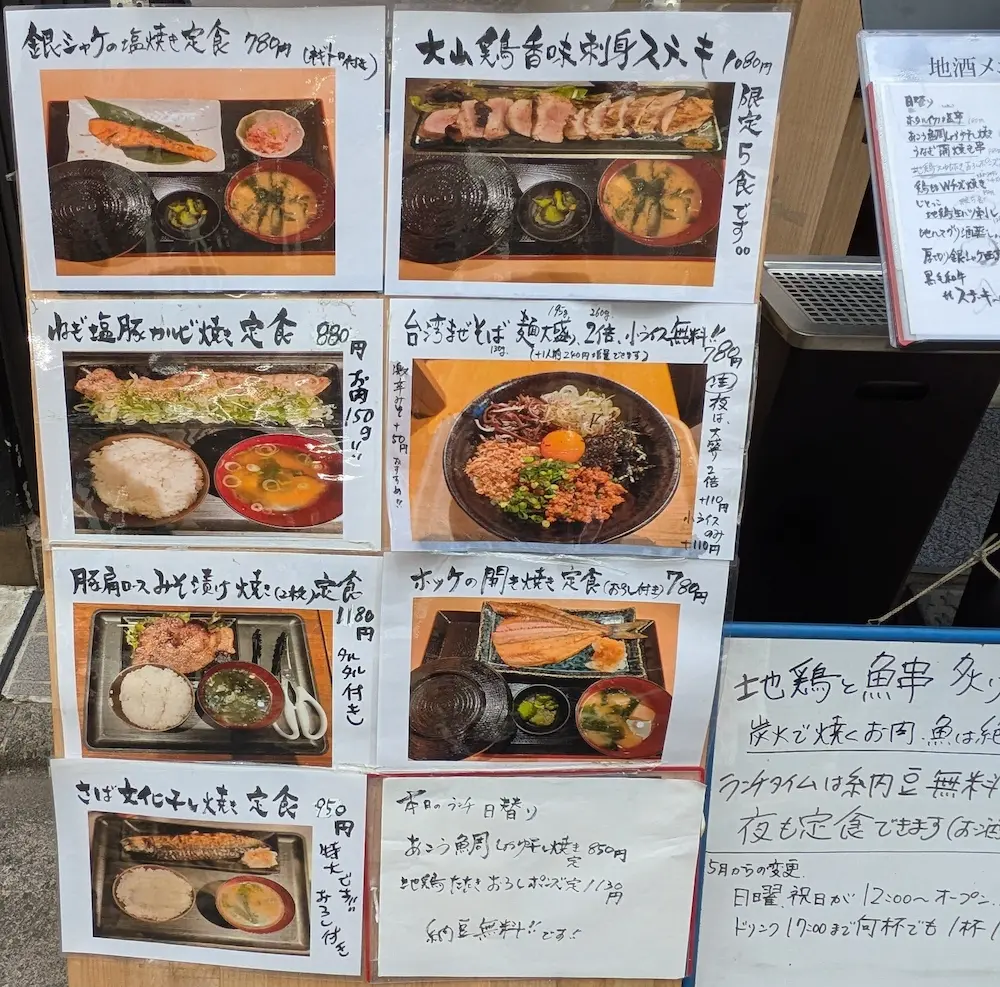 銀シャケの塩焼き定食 780円
(ネギトロ付き)
大山鶏香味刺身ステーキ 1080円
限定5食です!!
ねぎ塩豚カルビ焼き定食 880円
お肉150g!!
台湾まぜそば 麺大盛, 2倍, 小ライス無料!! 780円
130g 195g 260g
(+1人前240円増量できます)
激辛みそ+50円おすすめ!!
夜は、大盛り2倍
+110円
小ライス
のみ
+110円
豚肩ロースみそ漬け焼き(2枚)定食
1180円
タルタル付き
ホッケの開き焼き定食(おろし付き)780円
さば文化干し焼き定食 950円
特大です!! おろし付き
本日のランチ 日替り
あこう鯛しょうゆ干し焼き定 850円
地鶏たたきおろしポンズ定 1130円
納豆無料!!です!!
地酒メ
日替り
うなぎ蒲焼き串
黒毛和牛
地鶏と魚串 炙り
炭火で焼くお肉、魚は絶
ランチタイムは納豆無料
夜も定食できます(お酒
5月からの変更
日曜、祝日が12:00〜オープン、
ドリンク17:00まで何杯でも1杯1